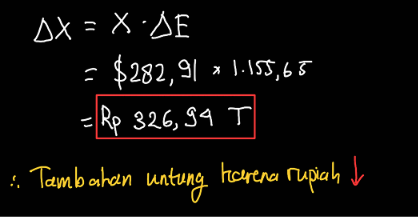 ΔX = X · ΔE
= $282,91 × 1.155,65
= Rp 326,94 T
∴ Tambahan untung karena rupiah ↓